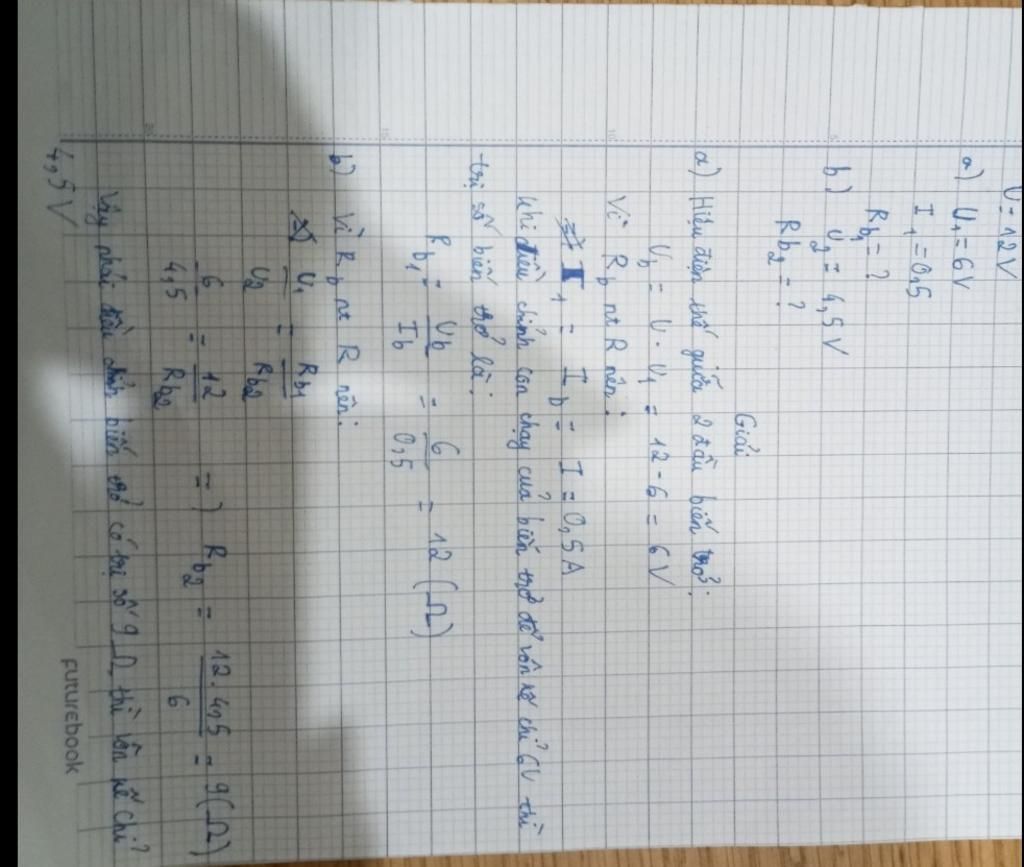 U = 12V
a) U₁ = 6V
I₁ = 0,5
R_b₁ = ?
b) U₂ = 4,5V
R_b₂ = ?
Giải
a) Hiệu điện thế giữa 2 đầu biến trở:
U_b = U - U₁ = 12 - 6 = 6V
Vì R_b nt R nên:
I₁ = I_b = I = 0,5A
Khi điều chỉnh con chạy của biến trở để vôn kế chỉ 6V thì
trị số biến trở là:
R_b₁ = U_b / I_b = 6 / 0,5 = 12 (Ω)
b) Vì R_b nt R nên:
U₁ / U₂ = R_b1 / R_b2
6 / 4,5 = 12 / R_b2 => R_b₂ = 12 . 4,5 / 6 = 9(Ω)
Vậy phải điều chỉnh biến trở có trị số 9Ω thì vôn kế chỉ
4,5V
5
10
15
20
Futurebook